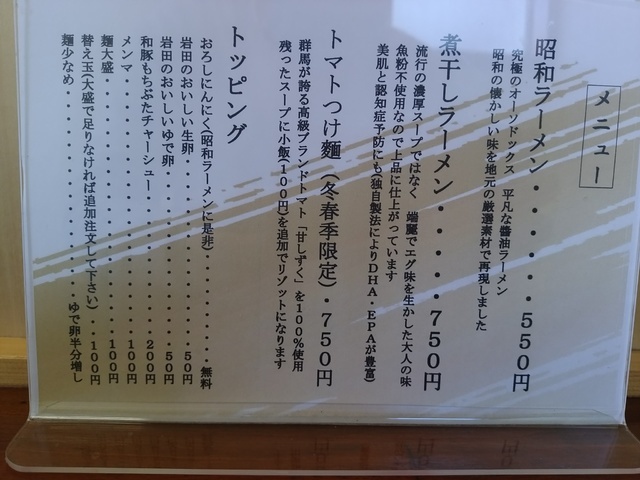 メニュー
昭和ラーメン・・・・・・・５５０円
究極のオーソドックス 平凡な醤油ラーメン
昭和の懐かしい味を地元の厳選素材で再現しました
煮干しラーメン・・・・・７５０円
流行の濃厚スープではなく 端麗でエグ味を生かした大人の味
魚粉不使用なので上品に仕上がっています
美肌と認知症予防にも(独自製法によりDHA・EPAが豊富)
トマトつけ麺（冬春季限定）・７５０円
群馬が誇る高級ブランドトマト「甘しずく」を100%使用
残ったスープに小飯(100円)を追加でリゾットになります
トッピング
おろしにんにく(昭和ラーメンに是非)・・・・・・・・無料
岩田のおいしい生卵・・・・・・・・・・・・・・50円
岩田のおいしいゆで卵・・・・・・・・・・・・・50円
和豚もちぶたチャーシュー・・・・・・・・・・・200円
メンマ・・・・・・・・・・・・・・・・・・・・100円
麺大盛・・・・・・・・・・・・・・・・・・・・100円
替え玉(大盛で足りなければ追加注文して下さい)・・100円
麺少なめ・・・・・・・・・・・・・・・・ゆで卵半分増し